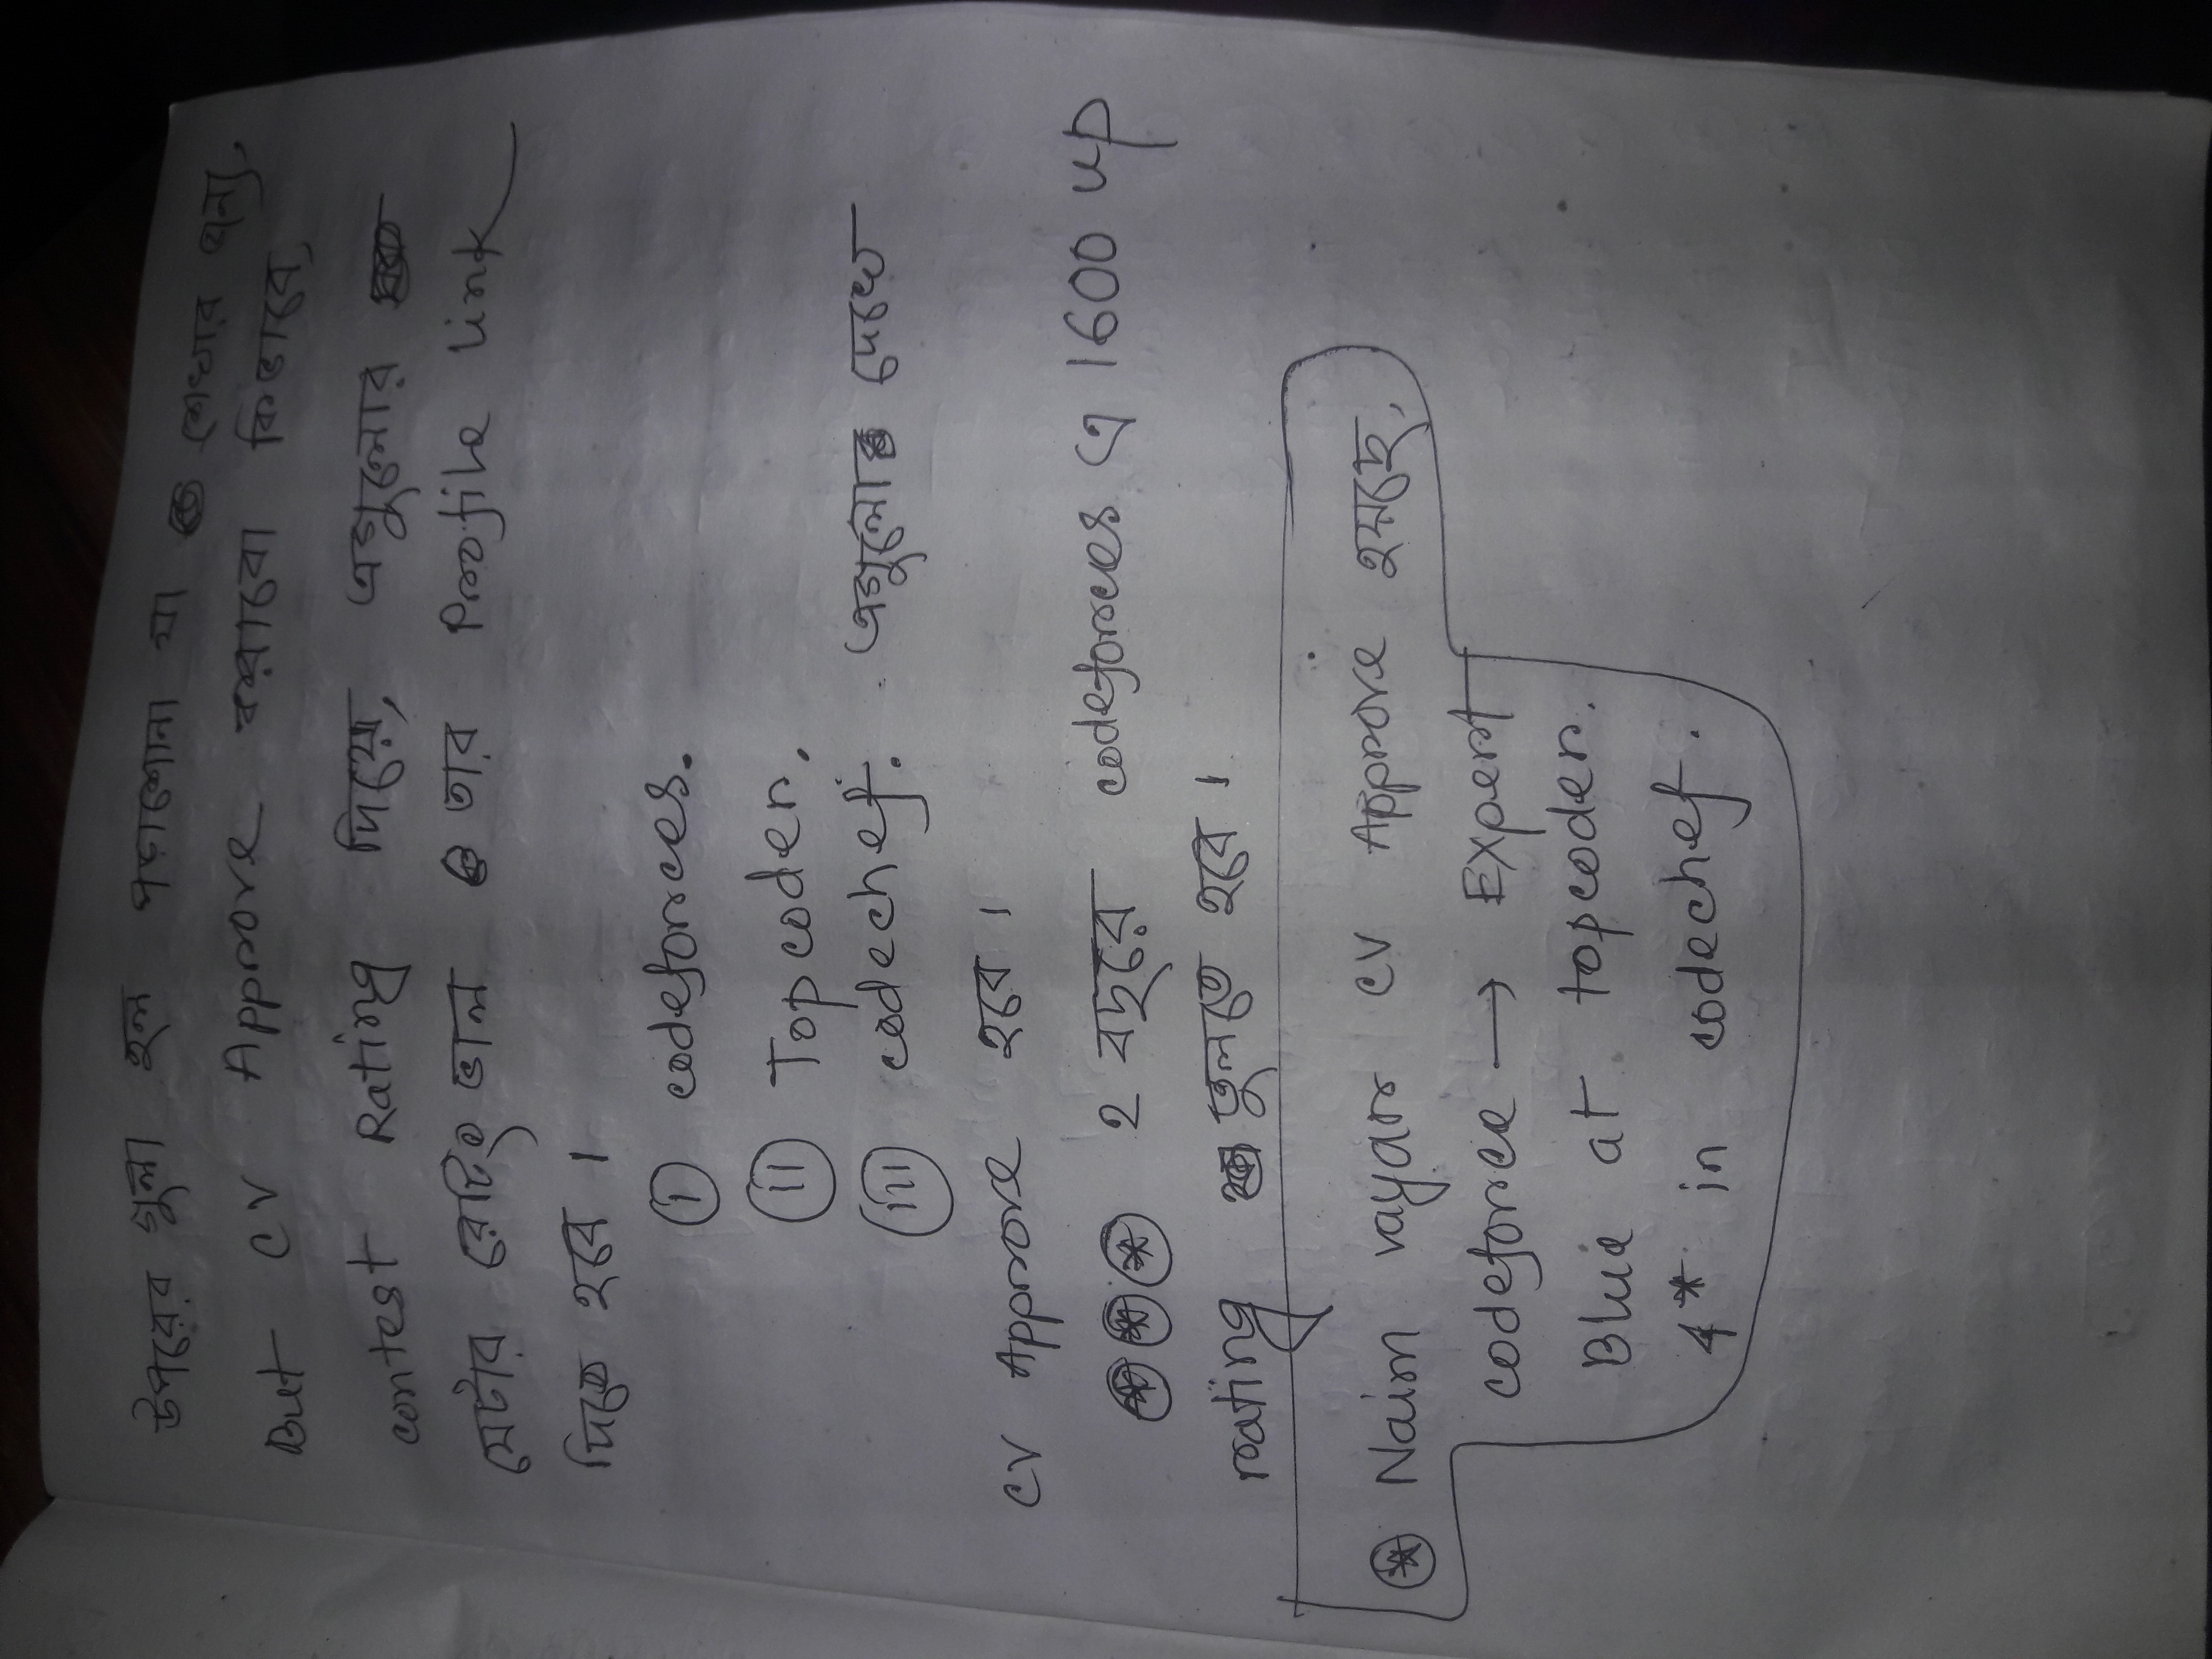 উপরের গুলা হল পড়াশোনা যা শেখার জন্য,
But CV Approve করাবো কিভাবে,
contest Rating দিয়ে, এগুলোর
যেটার রেটিং ভাল তার Profile link
দিতে হবে ।
(i) codeforces.
(ii) Topcoder.
(iii) codechef. এগুলো দেখে
CV Approve হবে ।
*** ২ বছরে codeforces এ 1600 up
rating তুলতে হবে ।
* Naim vayar CV Approve হয়ছে,
codeforce → Expert
Blue at topcoder.
4* in codechef.